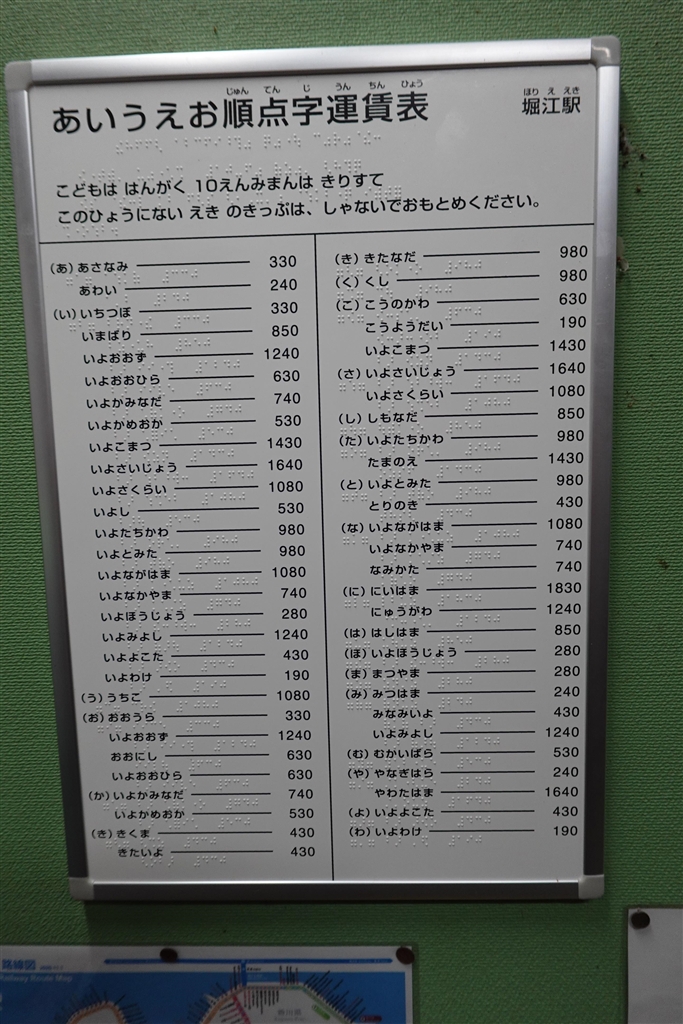 じゅん てん じ うん ちん ひょう
あいうえお順点字運賃表
ほり え えき
堀江駅
こどもは はんがく 10えんみまんは きりすて
このひょうにない えき のきっぷは、しゃないでおもとめください。
(あ)あさなみ 330
あわい 240
(い)いちつぼ 330
いまばり 850
いよおおず 1240
いよおおひら 630
いよかみなだ 740
いよかめおか 530
いよこまつ 1430
いよさいじょう 1640
いよさくらい 1080
いよし 530
いよたちかわ 980
いよとみた 980
いよながはま 1080
いよなかやま 740
いよほうじょう 280
いよみよし 1240
いよよこた 430
いよわけ 190
(う)うちこ 1080
(お)おおうら 330
いよおおず 1240
おおにし 630
いよおおひら 630
(か)いよかみなだ 740
いよかめおか 530
(き)きくま 430
きたいよ 430
(き)きたなだ 980
(く)くし 980
(こ)こうのかわ 630
こうようだい 190
いよこまつ 1430
(さ)いよさいじょう 1640
いよさくらい 1080
(し)しもなだ 850
(た)いよたちかわ 980
たまのえ 1430
(と)いよとみた 980
とりのき 430
(な)いよながはま 1080
いよなかやま 740
なみかた 740
(に)にいはま 1830
にゅうがわ 1240
(は)はしはま 850
(ほ)いよほうじょう 280
(ま)まつやま 280
(み)みつはま 240
みなみいよ 430
いよみよし 1240
(む)むかいばら 530
(や)やなぎはら 240
やわたはま 1640
(よ)いよよこた 430
(わ)いよわけ 190
路線図
Railway Route Map